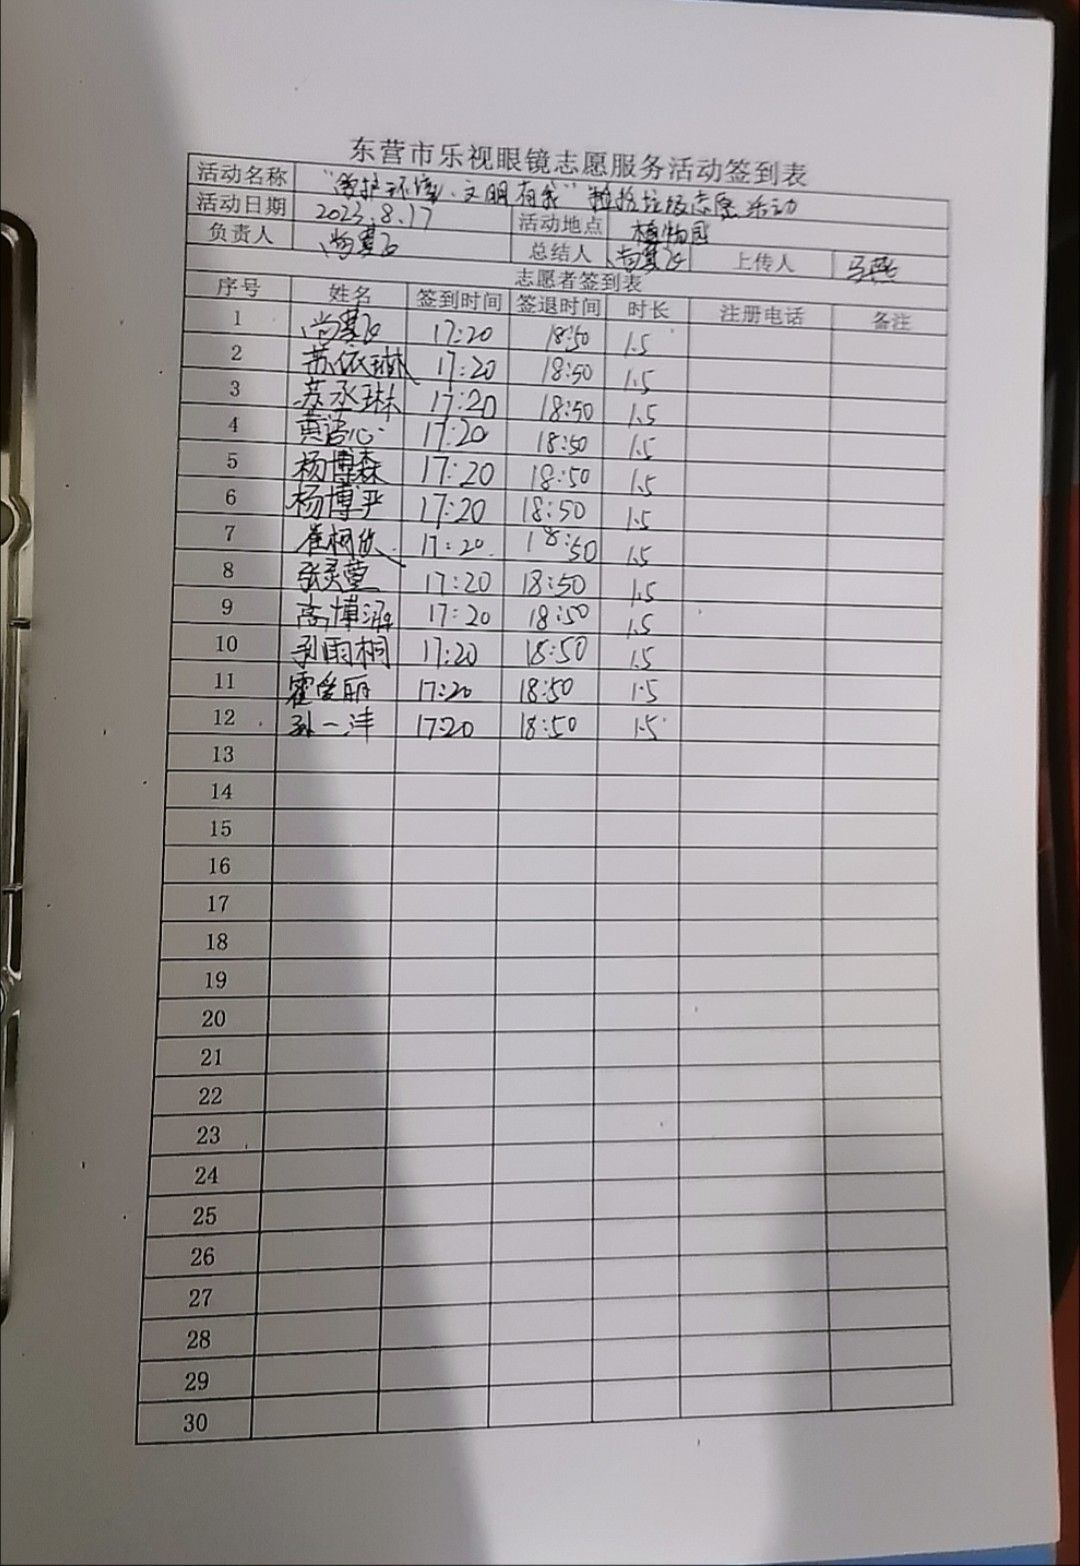 东营市乐视眼镜志愿服务活动签到表
活动名称 "爱护环境、文明有我"捡拾垃圾志愿活动
活动日期 2023.8.17 活动地点 植物园
负责人 尚夏 总结人 尚夏 上传人 马燕
志愿者签到表
序号 姓名 签到时间 签退时间 时长 注册电话 备注
1 尚夏 17:20 18:50 1.5
2 苏依琳 17:20 18:50 1.5
3 苏丞琳 17:20 18:50 1.5
4 黄语心 17:20 18:50 1.5
5 杨博森 17:20 18:50 1.5
6 杨博严 17:20 18:50 1.5
7 崔柯欣 17:20 18:50 1.5
8 张灵萱 17:20 18:50 1.5
9 高博涵 17:20 18:50 1.5
10 雨桐 17:20 18:50 1.5
11 霍爱丽 17:20 18:50 1.5
12 孙一沣 17:20 18:50 1.5
13
14
15
16
17
18
19
20
21
22
23
24
25
26
27
28
29
30